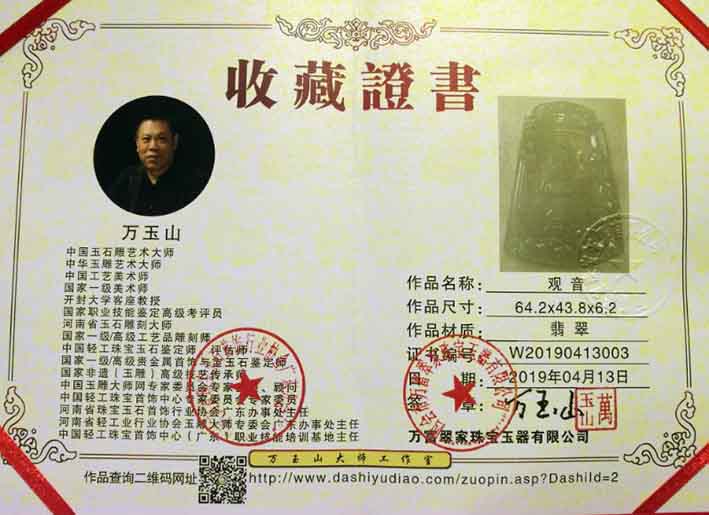 收藏證書
万玉山
中国玉石雕艺术大师
中华玉雕艺术大师
中国工艺美术师
国家一级美术师
开封大学客座教授
国家职业技能鉴定高级考评员
河南省玉石雕刻大师
国家一级/高级工艺品雕刻师
中国轻工珠宝玉石鉴定师、评估师
国家一级/高级贵金属首饰与宝玉石鉴定师
国家非遗（玉雕）高级技艺传承师
中国玉雕大师网专家委员会专家 、顾问
中国轻工珠宝首饰中心专家委员会专家委员
河南省珠宝玉石首饰行业协会广东办事处主任
河南省轻工业行业协会玉雕大师专委会广东办事处主任
中国轻工珠宝首饰中心（广东）职业技能培训基地主任
作品名称： 观音
作品尺寸： 64.2x43.8x6.2
作品材质： 翡翠
证书编号： W20190413003
日期： 2019年04月13日
签章： 万玉山
萬玉山
万富翠家珠宝玉器有限公司
万玉山大师工作室
作品查询二维码网址 http://www.dashiyudiao.com/zuopin.asp?DashiId=2